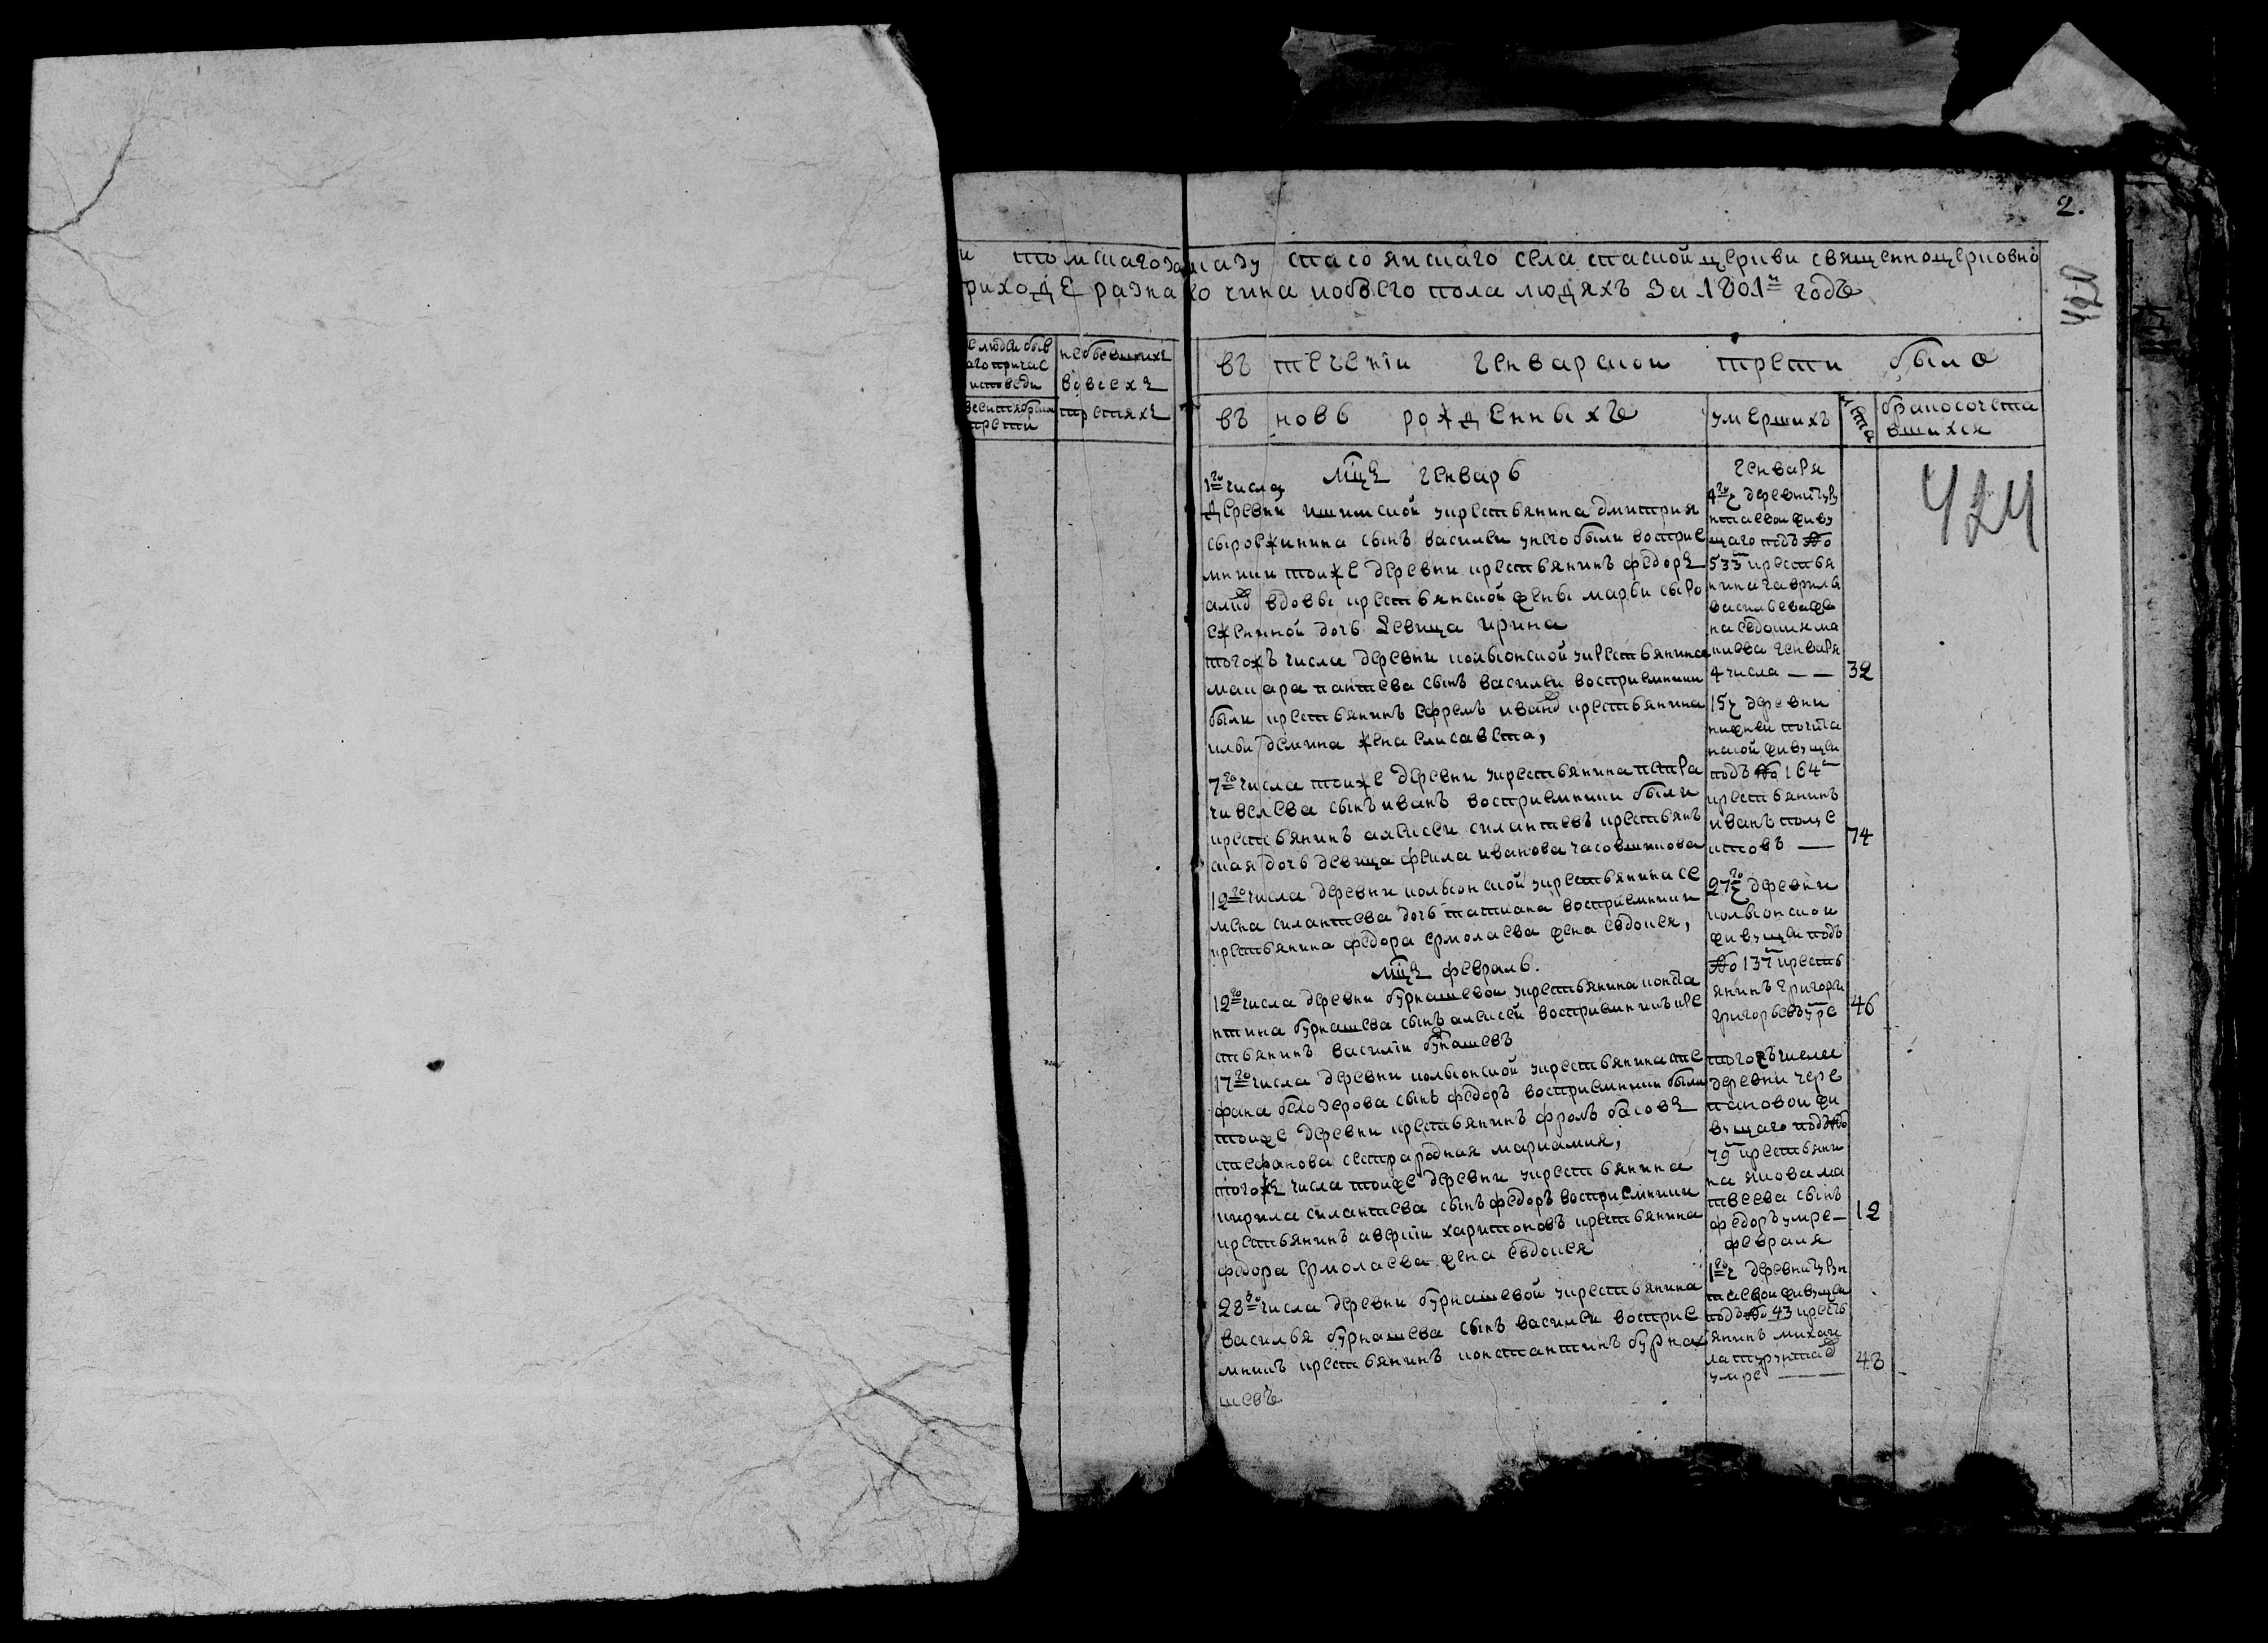 2.
420
и томскаго заказу спасо янскаго села спаской церкви священноцерковно
риходе разнаго чина иобоего пола людяхъ За 1801й годъ
не бывшихъ
вовсехъ
третяхъ
исповеди
трети
въ теченiи генварской трети было
въ новь рожденныхъ
умершихъ
лета
бракосочета
вшихся
424
мцъ генварь
1го числа
деревни ишимской укрестьянина дмитрия
сыроежкинина сынъ василеи унего были восприе
мники тоиже деревни крестьянинъ федоръ
вдовы крестьянской жены марьи сыро
ежкиной дочь девица ирина
тогожъ числа деревни кольюнской укрестьянина
макара пантева сынъ василеи восприемники
были крестьянинъ ефремъ иванов крестьянина
ильи демина жена елисавета,
7го числа тоиже деревни укрестьянина петра
чивелева сынъ иванъ восприемники были
крестьянинъ алексеи силантевъ крестьянъ
ская дочь девица фекла иванова часовшикова
12го числа деревни кольюнской укрестьянина се
мена силантева дочь татиана восприемники
крестьянина федора ермолаева жена евдокея,
мцъ февраль.
12го числа деревни бурнашевои укрестьянина конста
нтина бурнашева сынъ алексей восприемникъ кре
стьянинъ василiи бурнашевъ
17го числа деревни кольюнской укрестьянина сте
фана белозерова сынъ федоръ восприемники были
тоиже деревни крестьянинъ фролъ басовъ
стефанова сестра родная мариамия,
тогожъ числа тоиже деревни укрестьянина
кирила силантева сынъ федоръ восприемники
крестьянинъ аверкiи харитоновъ крестьянина
федора ермолаева жена евдокея
28го числа деревни бурнашевой укрестьянина
василья бурнашева сынъ василеи восприе
мникъ крестьянинъ константинъ бурна
шевъ
генваря
щаго подъ No
533м крестья
нина гаврила
васильева же
на евдокия ма
кеева генваря
4 числа — — 32
15ч деревни
нижнеи почита
нской живущеи
подъ No 164м
крестьянинъ
иванъ полуе
ктовъ — 74
27го ч деревни
кольюнскои
живущеи подъ
No 137 кресть
янинъ григореи
григорьевъ умре 46
тогожъ числа
деревни чере
пановои жи
вущаго подъ No
79 крестьяни
на якова ма
твеева сынъ
федоръ умре — 12
февраля
подъ No 43 кресть
янинъ михаи
умре — 48